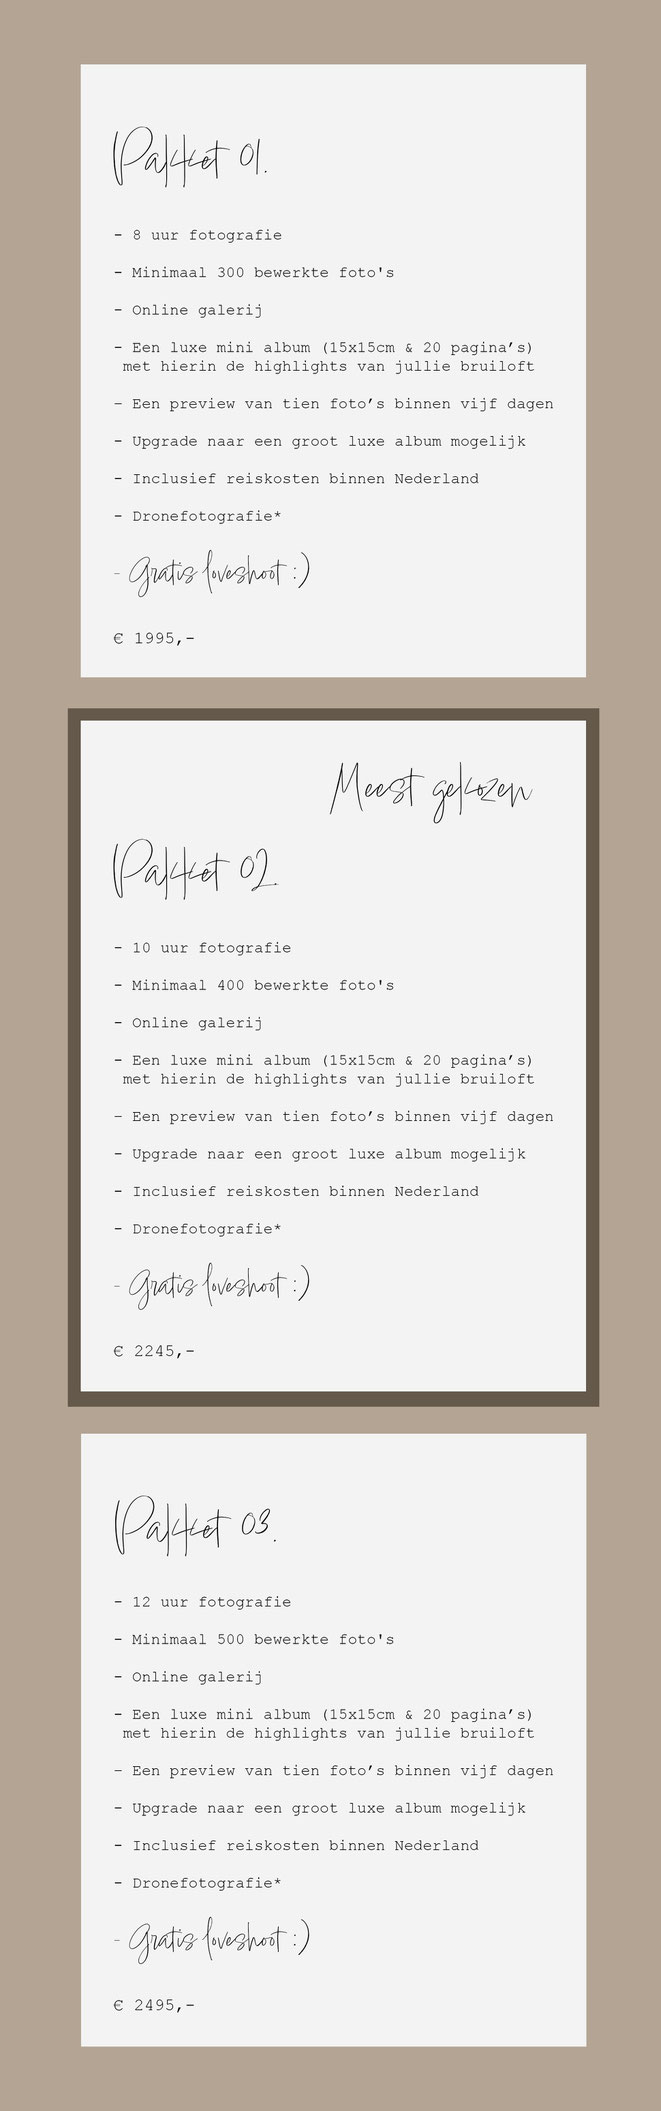 Pakket 01.
- 8 uur fotografie
- Minimaal 300 bewerkte foto's
- Online galerij
- Een luxe mini album (15x15cm & 20 pagina’s)
met hierin de highlights van jullie bruiloft
- Een preview van tien foto’s binnen vijf dagen
- Upgrade naar een groot luxe album mogelijk
- Inclusief reiskosten binnen Nederland
- Dronefotografie*
- Gratis loveshoot :)
€ 1995,-
Meest gekozen
Pakket 02.
- 10 uur fotografie
- Minimaal 400 bewerkte foto's
- Online galerij
- Een luxe mini album (15x15cm & 20 pagina’s)
met hierin de highlights van jullie bruiloft
- Een preview van tien foto’s binnen vijf dagen
- Upgrade naar een groot luxe album mogelijk
- Inclusief reiskosten binnen Nederland
- Dronefotografie*
- Gratis loveshoot :)
€ 2245,-
Pakket 03.
- 12 uur fotografie
- Minimaal 500 bewerkte foto's
- Online galerij
- Een luxe mini album (15x15cm & 20 pagina’s)
met hierin de highlights van jullie bruiloft
- Een preview van tien foto’s binnen vijf dagen
- Upgrade naar een groot luxe album mogelijk
- Inclusief reiskosten binnen Nederland
- Dronefotografie*
- Gratis loveshoot :)
€ 2495,-